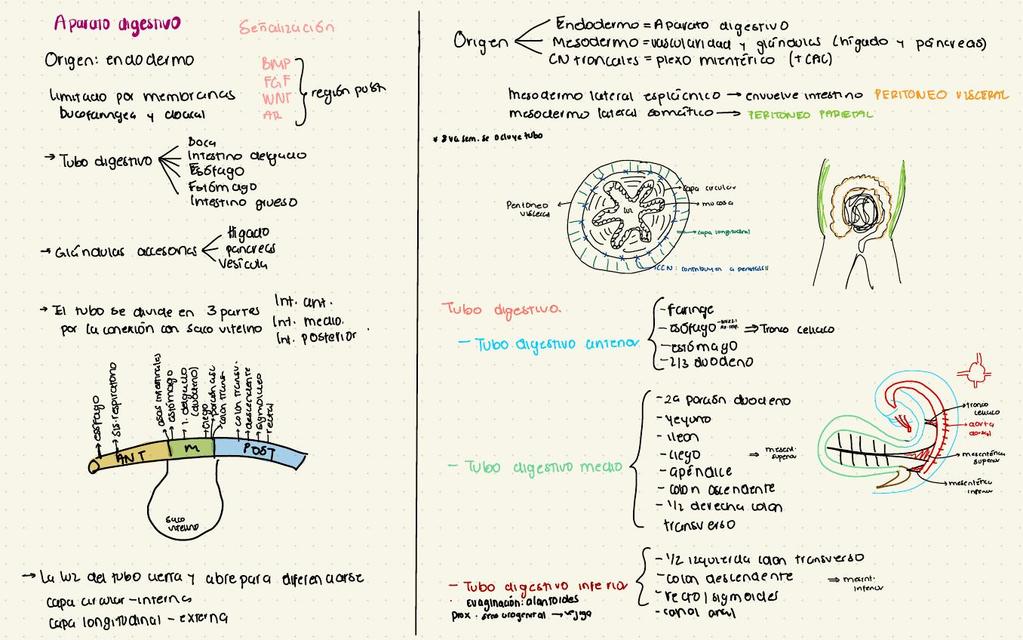 Aparato digestivo
Señalización
Origen: endodermo
BMP
FGF
WNT
AR
región post
Limitado por membranas
bucofaringea y cloacal
→ Tubo digestivo
Boca
Intestino delgado
Esófago
Estómago
Intestino grueso
→ Glándulas accesorias
Hígado
páncreas
Vesícula
→ El tubo se divide en 3 partes
por la conexión con saco vitelino
Int. ant.
Int. medio.
Int. posterior
esófago
sis. respiratorio
asas intestinales
estómago
i. delgado
(duodeno)
ciego
porción asc.
colon trans.
colon transv.
descendente
sigmoideo
rectal
ANT
M
POST
saco
vitelino
→ La luz del tubo cierra y abre para diferenciarse
capa circular - interna
capa longitudinal - externa
Origen
Endodermo = Aparato digestivo
Mesodermo = vascularidad y glándulas (hígado y páncreas)
CN troncales = plexo mientérico (+CAC)
mesodermo lateral esplácnico → envuelve intestino PERITONEO VISCERAL
mesodermo lateral somático → PERITONEO PARIETAL
* 8va sem. se ocluye tubo
Peritoneo
visceral
luz
capa circular
mucosa
capa longitudinal
CCN: contribuyen a peristalsis
Tubo digestivo.
- Tubo digestivo anterior
- Faringe
- esófago
⇒ Tronco celiaco
- estómago
- 2/3 duodeno
- Tubo digestivo medio
- 2a porción duodeno
- yeyuno
- ileon
- ciego
- apéndice
- colon ascendente
- 1/2 derecha colon
transverso
⇒ mesent.
superior
tronco
celiaco
aorta
dorsal
mesentérica
superior
mesentérica
inferior
- Tubo digestivo inferior
evaginación: alantoides
prox. seno urogenital → vejiga
- 1/2 izquierda colon transverso
- colon descendente
- recto/sigmoides
- canal anal
⇒ mesent.
inferior